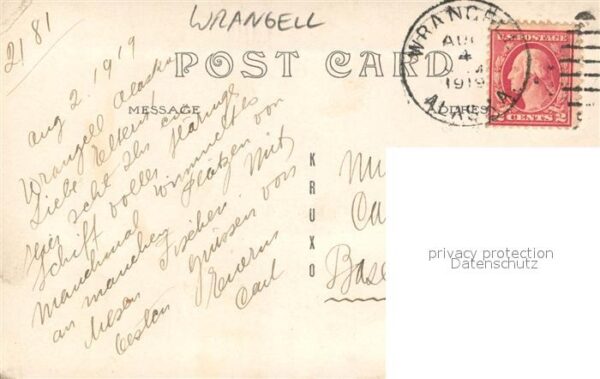 2181
WRANGELL
POST CARD
WRANGELL
AUG
4
1919
ALASKA
U.S. POSTAGE
2 CENTS 2
MESSAGE
ADDRESS
Aug 2. 1919
Wrangell Alaska
Liebe Eltern!
Hier seht Ihr ein
Schiff volles Häringe
Manchmal wimmelt es
an manchen Plätzen von
diesen Fischen. Mit
besten Grüssen von
Eurem
Carl
KRUXO
Ca
Base
privacy protection
Datenschutz